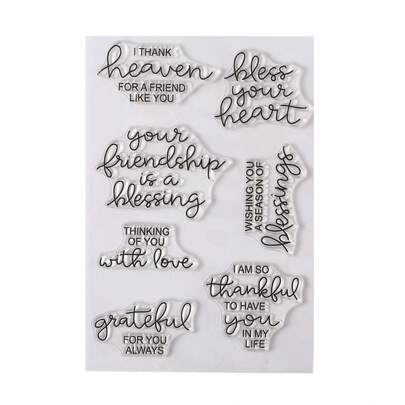 I THANK
heaven
FOR A FRIEND
LIKE YOU
bless
your
heart
your
friendship
is a
blessing
WISHING YOU
A SEASON OF
blessings
THINKING
OF YOU
with love
I AM SO
thankful
TO HAVE
you
IN MY
LIFE
grateful
FOR YOU
ALWAYS